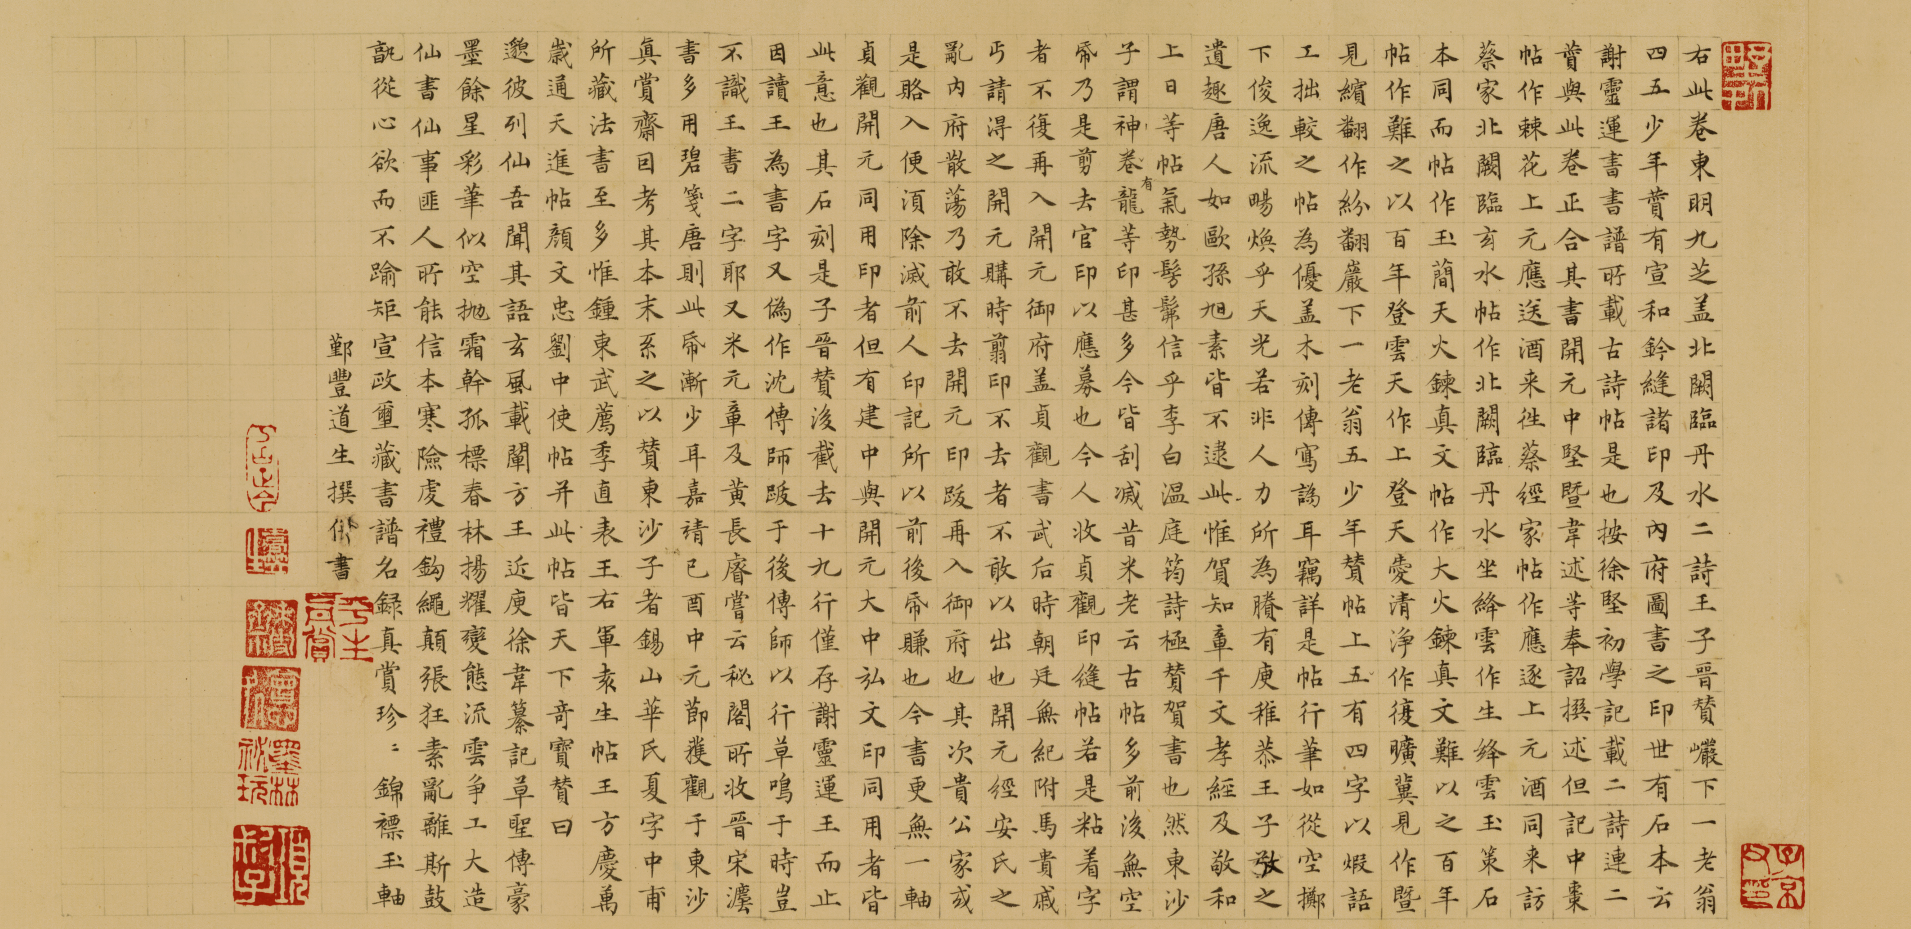 右此卷東明九芝盖北闕臨丹水二詩王子晋贊巗下一老翁
四五少年贊有宣和鈐縫諸印及內府圖書之印世有石本云
謝靈運書書譜所載古詩帖是也按徐堅初學記載二詩連二
贊與此卷正合其書開元中堅暨韋述等奉詔撰述但記中棗
帖作棘花上元應送酒来徃蔡經家帖作應逐上元酒同来訪
蔡家北闕臨玄水帖作北闕臨丹水坐絳雲作生絳雲玉策石
本同而帖作玉簡天火鍊真文帖作大火鍊真文難以之百年
帖作難之以百年登雲天作上登天愛清淨作復曠冀見作暨
見繽翻作紛翻巖下一老翁五少年贊帖上五有四字以煆語
工拙較之帖為優盖木刻傳寫譌耳竊詳是帖行筆如從空擲
下俊逸流暢煥乎天光若非人力所為賸有庾稚恭王子敬之
遺趣唐人如歐孫旭素皆不逮此惟賀知章千文孝經及敬和
上日等帖氣勢髣髴信乎李白温庭筠詩極贊賀書也然東沙
子謂神卷有龍等印甚多今皆刮滅昔米老云古帖多前後無空
帋乃是剪去官印以應募也今人收貞觀印縫帖若是粘着字
者不復再入開元御府盖貞觀書武后時朝廷無紀附馬貴戚
丐請淂之開元購時翦印不去者不敢以出也開元經安氏之
亂內府散蕩乃敢不去開元印跋再入御府也其次貴公家或
是賂入便須除滅前人印記所以前後帋賺也今書更無一軸
貞觀開元同用印者但有建中與開元大中弘文印同用者皆
此意也其石刻是子晋贊後截去十九行僅存謝靈運王而止
因讀王為書字又偽作沈傳師跋于後傳師以行草鳴于時豈
不識王書二字耶又米元章及黄長睿嘗云秘閣所收晋宋灋
書多用碧箋唐則此帋漸少耳嘉靖己酉中元節獲觀于東沙
眞賞齋因考其本末系之以贊東沙子者錫山華氏夏字中甫
所藏法書至多惟鍾東武薦季直表王右軍袁生帖王方慶萬
歲通天進帖顔文忠劉中使帖并此帖皆天下竒寶贊曰
邈彼列仙吾聞其語玄風載闡方王近庾徐韋纂記草聖傳豪
墨餘星彩筆似空拋霜幹孤標春林揚耀變態流雲争工大造
仙書仙事匪人所能信本寒險虔禮鈎繩顛張狂素亂離斯鼓
翫從心欲而不踰矩宣政璽藏書譜名録真賞珍〻錦褾玉軸
鄞豐道生撰併書